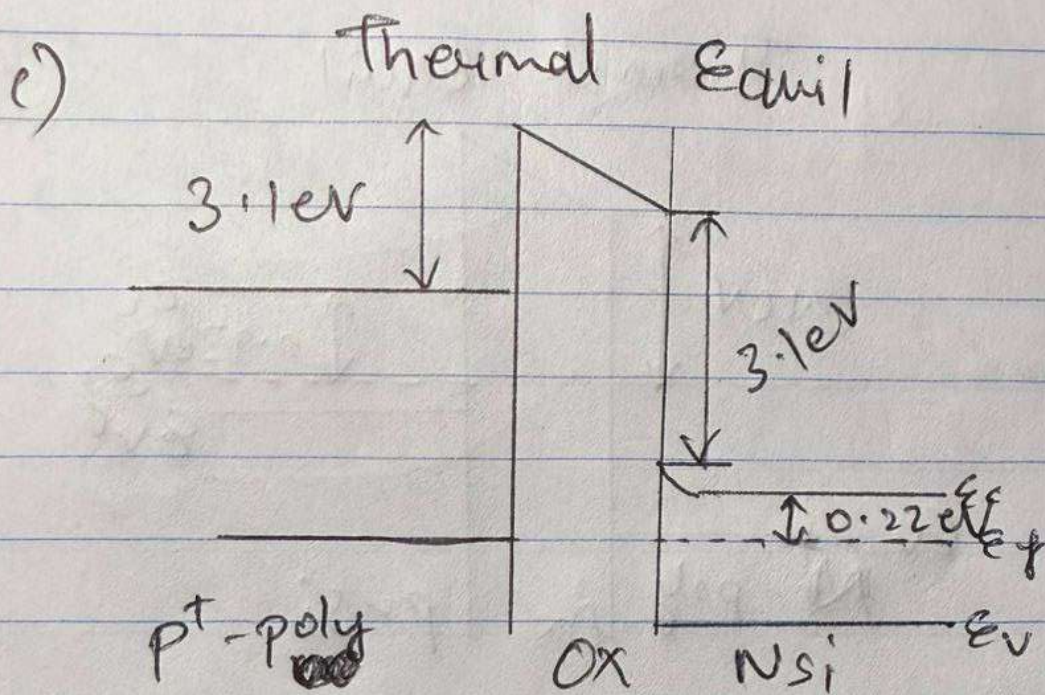 c)
Thermal Equil
3.1eV
3.1eV
Ec
0.22eV
Ef
p+-poly
Ox
Nsi
Ev